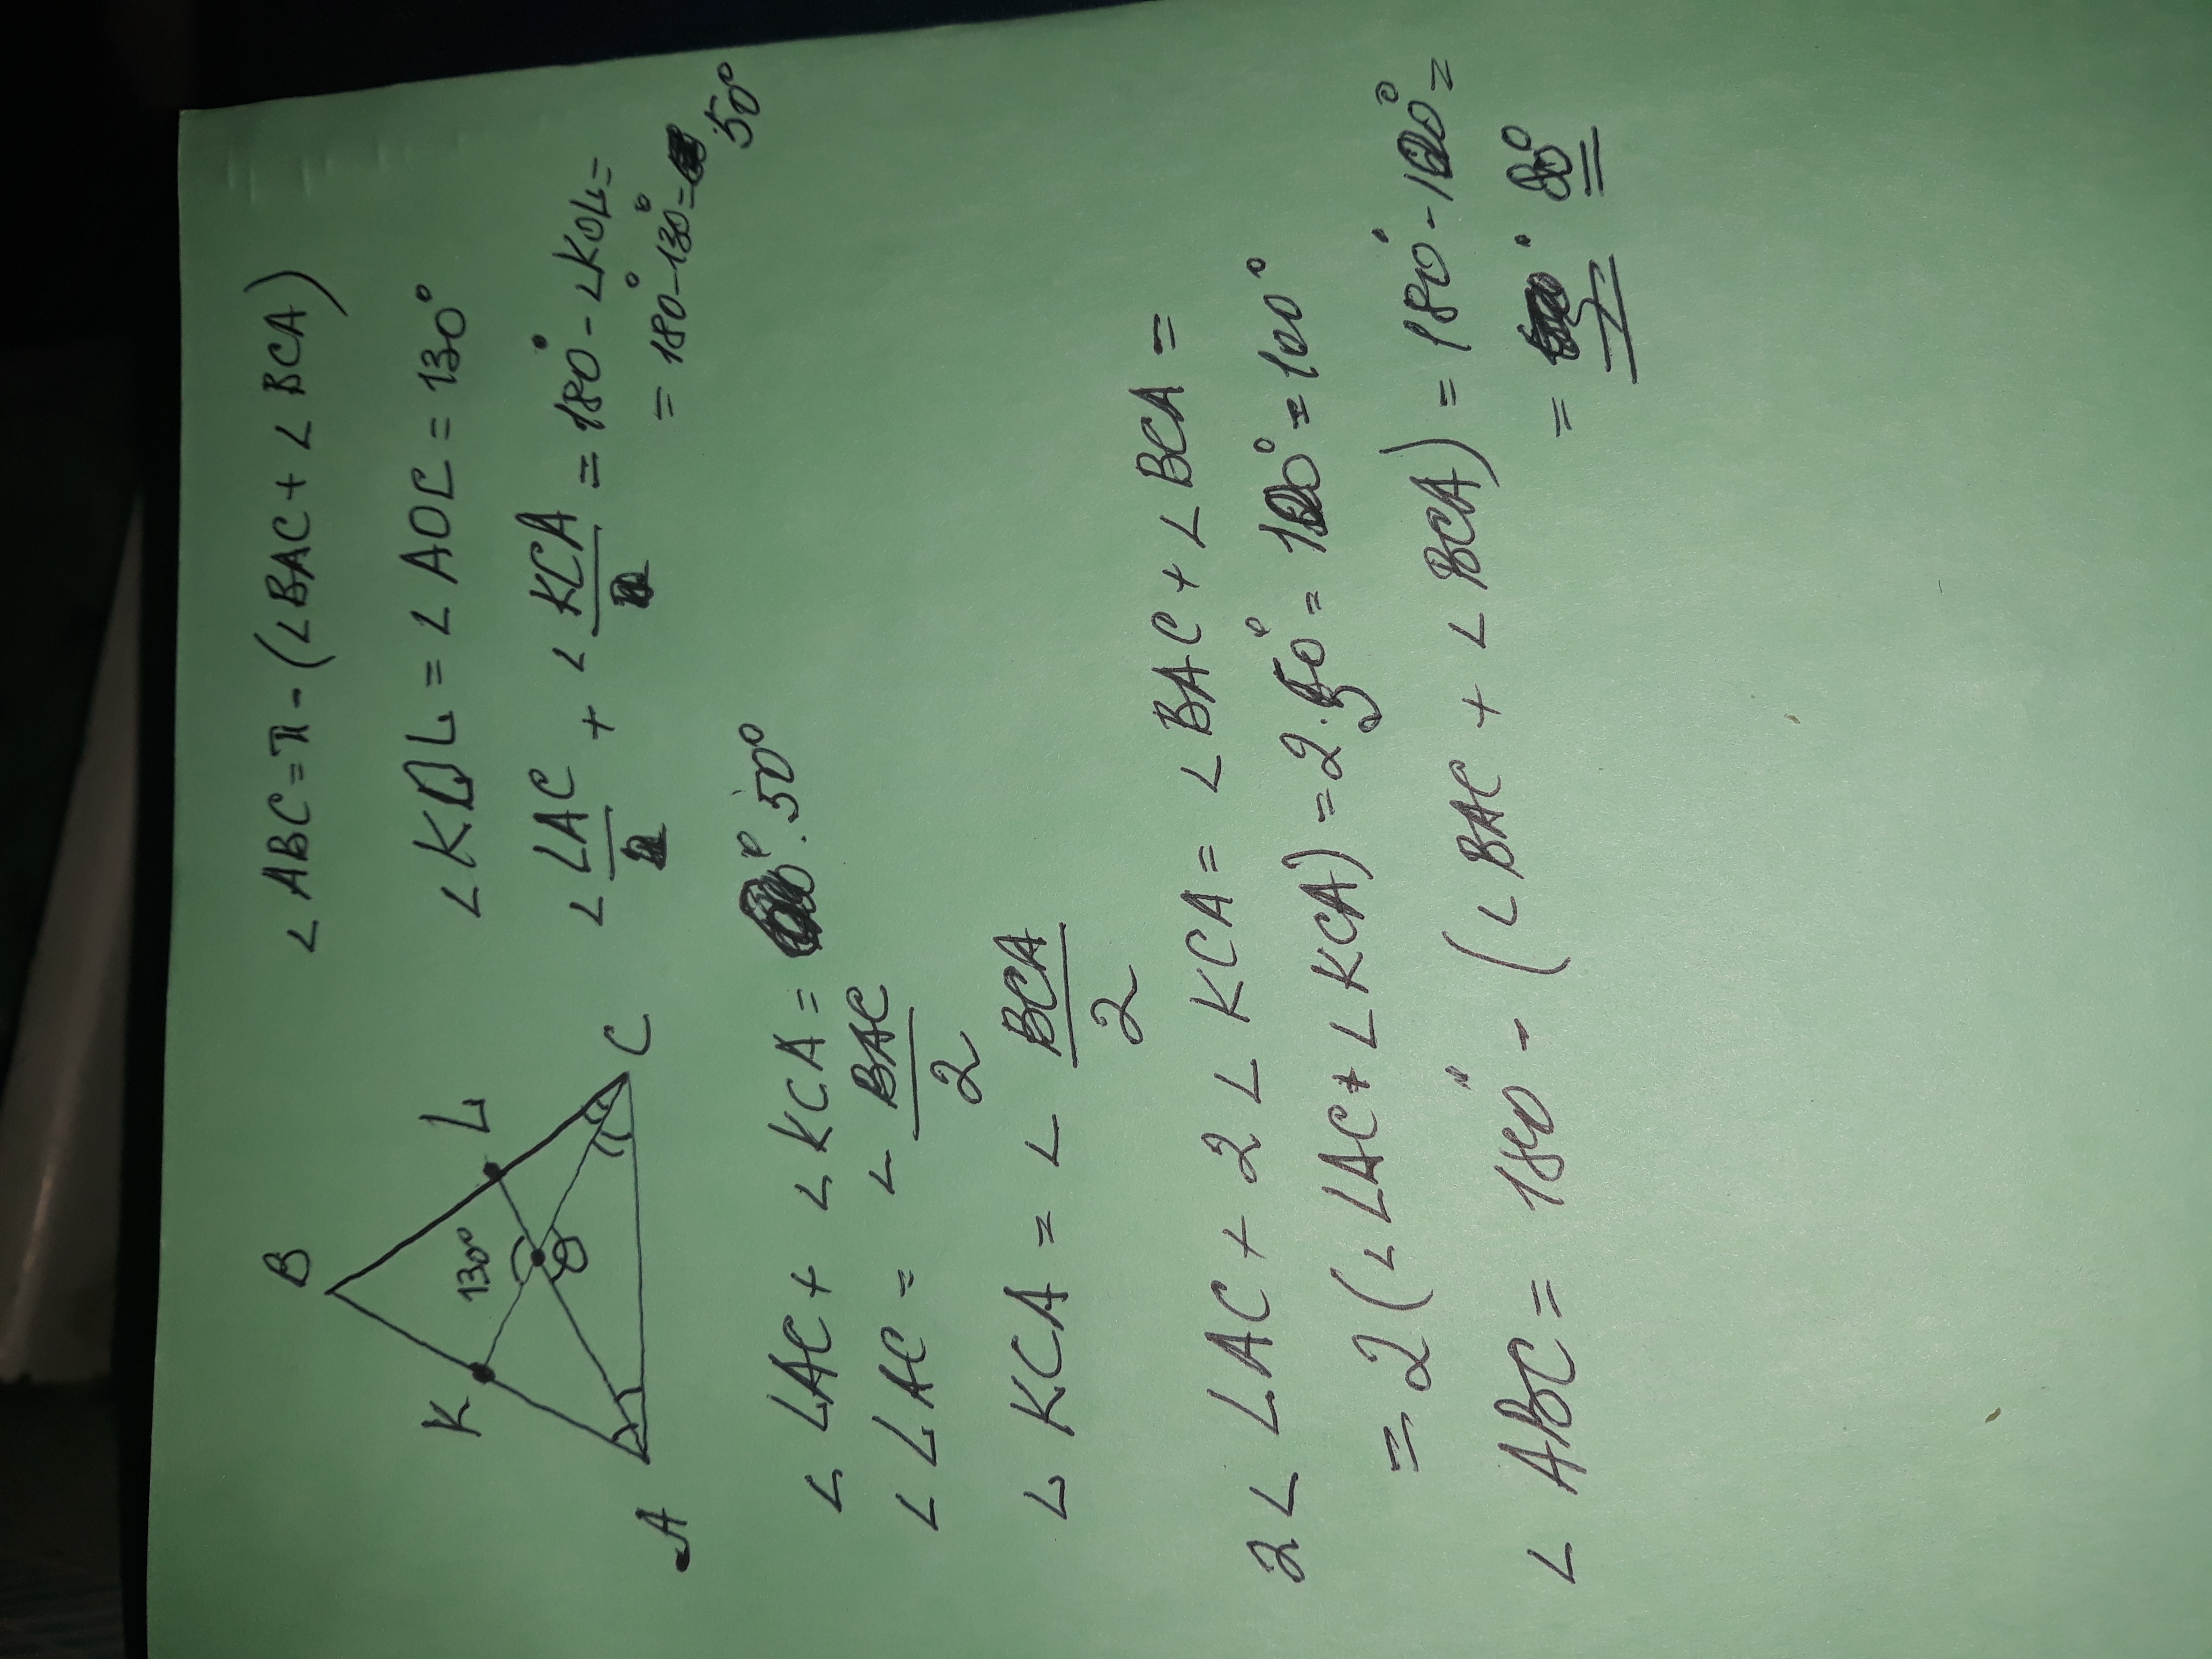 ∠ABC = π - (∠BAC + ∠BCA)
B
K
L
130°
O
A
C
∠KOL = ∠AOC = 130°
∠LAC + ∠KCA = 180° - ∠KOL =
= 180° - 130° = 50°
∠LAC + ∠KCA = 50°
∠LAC = ∠BAC/2
∠KCA = ∠BCA/2
2∠LAC + 2∠KCA = ∠BAC + ∠BCA =
= 2(∠LAC + ∠KCA) = 2·50° = 100° = 100°
∠ABC = 180° - (∠BAC + ∠BCA) = 180° - 100° =
= 80°